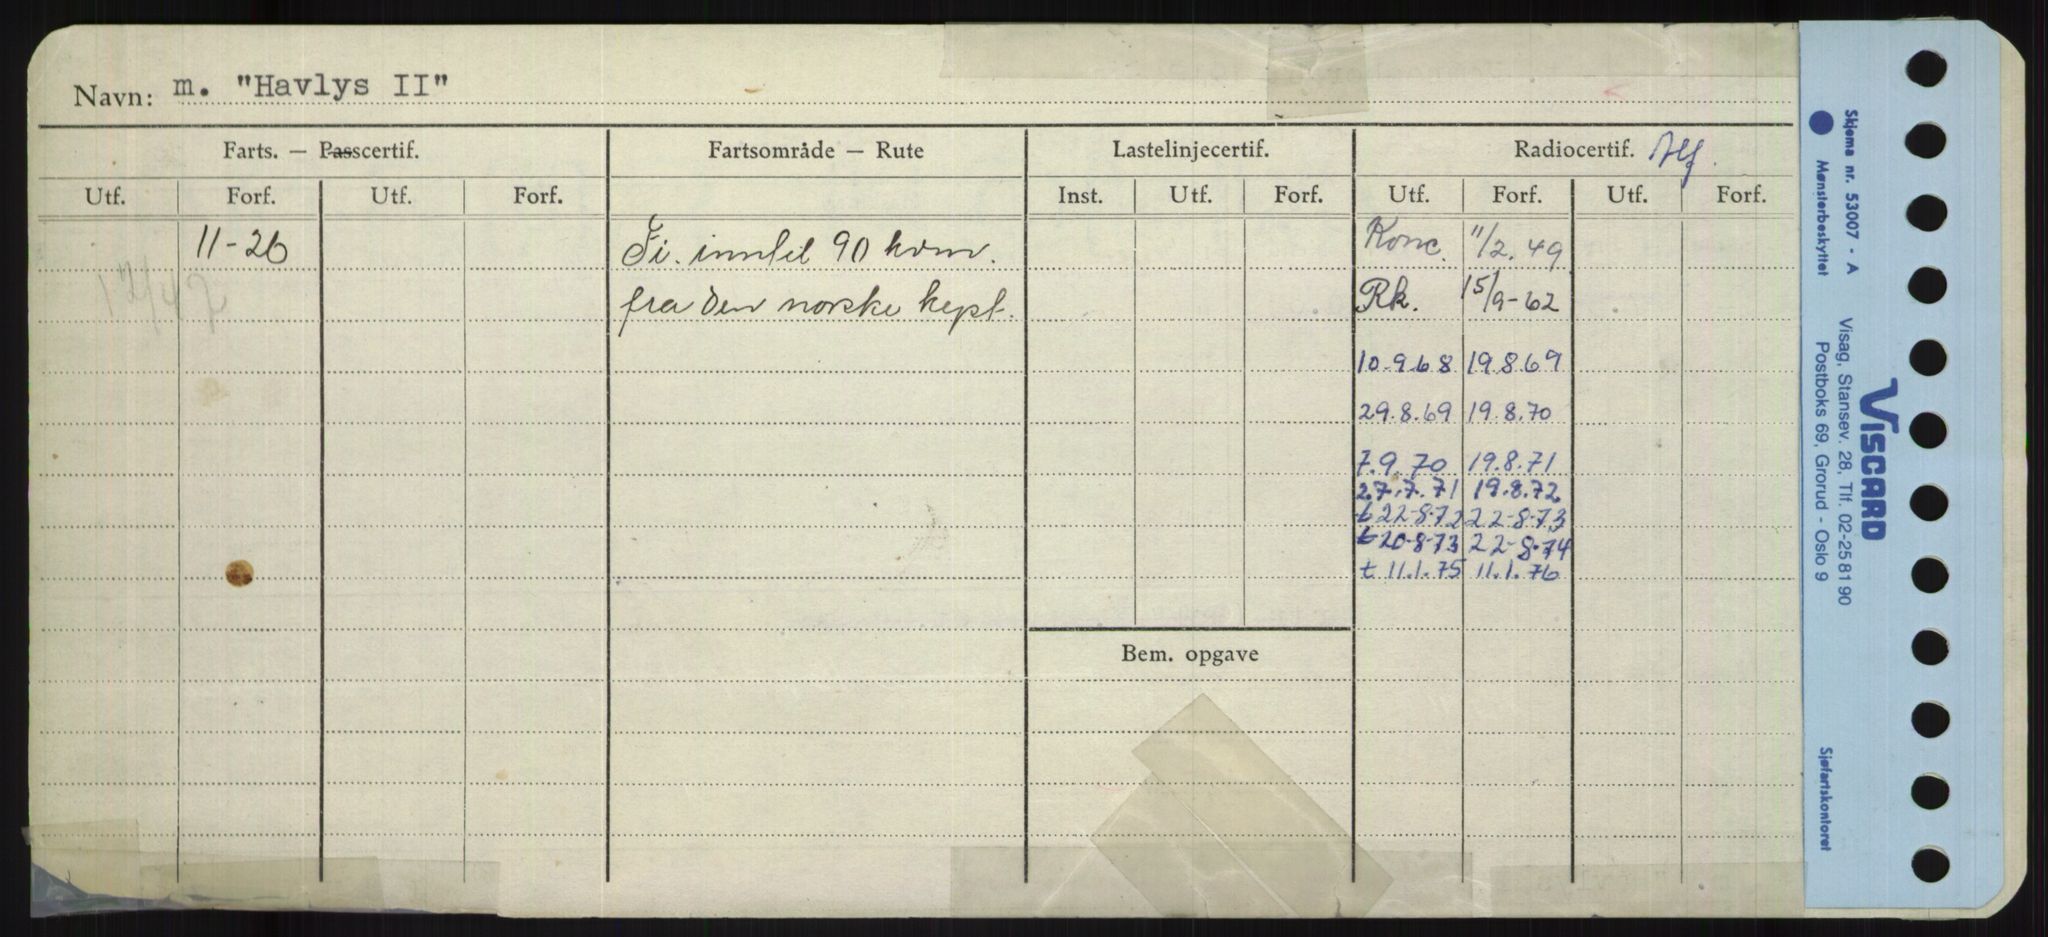 Navn: m. "Havlys II"
Farts. — Passcertif. Fartsområde — Rute Lastelinjecertif. Radiocertif. Alf.
Utf. Forf. Utf. Forf. Inst. Utf. Forf. Utf. Forf. Utf. Forf.
11-26 Fi. inntil 90 kvm. Konc. 11/2.49
fra den norske kyst. Rk. 15/9-62
10-9.68 19.8.69
29.8.69 19.8.70
7.9.70 19.8.71
27.7.71 19.8.72
t 22-8-72 22-8-73
t 20-8-73 22-8-74
t 11.1.75 11.1.76
Bem. opgave
Skjema nr. 53007 - A
Mønsterbeskyttet
Visag, Stansev. 28, Tlf. 02-258190
Postboks 69, Grorud - Oslo 9
VISCARD
Sjøfartskontoret